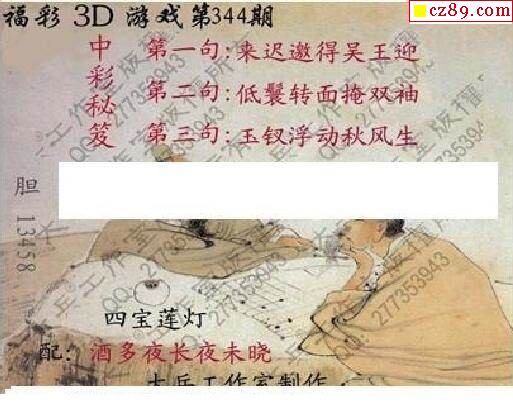 福彩3D游戏第344期
cz89.com
中彩秘笈
第一句:来迟邀得吴王迎
第二句:低鬟转面掩双袖
第三句:玉钗浮动秋风生
胆 13458
四宝莲灯
配: 酒多夜长夜未晓
大兵工作室制作
QQ:277353943